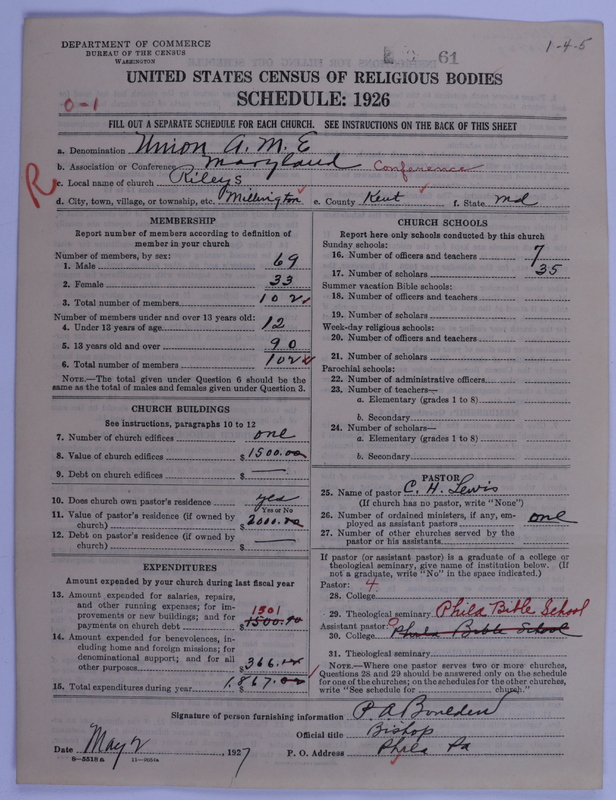 DEPARTMENT OF COMMERCE
BUREAU OF THE CENSUS
WASHINGTON
61
1-4-5
UNITED STATES CENSUS OF RELIGIOUS BODIES
SCHEDULE: 1926
0-1
FILL OUT A SEPARATE SCHEDULE FOR EACH CHURCH. SEE INSTRUCTIONS ON THE BACK OF THIS SHEET
a. Denomination Union A.M.E
b. Association or Conference Maryland Conference
R
c. Local name of church Rileys
d. City, town, village, or township, etc. Millington e. County Kent f. State Md
MEMBERSHIP
Report number of members according to definition of member in your church
Number of members, by sex:
1. Male 69
2. Female 33
3. Total number of members 102
Number of members under and over 13 years old:
4. Under 13 years of age 12
5. 13 years old and over 90
6. Total number of members 102
NOTE.—The total given under Question 6 should be the same as the total of males and females given under Question 3.
CHURCH BUILDINGS
See instructions, paragraphs 10 to 12
7. Number of church edifices one
8. Value of church edifices $1500.00
9. Debt on church edifices $
10. Does church own pastor's residence yes
Yes or No
11. Value of pastor's residence (if owned by church) $2000.00
12. Debt on pastor's residence (if owned by church) $
EXPENDITURES
Amount expended by your church during last fiscal year
13. Amount expended for salaries, repairs, and other running expenses; for improvements or new buildings; and for payments on church debt $1500.00 1501
14. Amount expended for benevolences, including home and foreign missions; for denominational support; and for all other purposes $366.
15. Total expenditures during year $1,867.
CHURCH SCHOOLS
Report here only schools conducted by this church
Sunday schools:
16. Number of officers and teachers 7
17. Number of scholars 35
Summer vacation Bible schools:
18. Number of officers and teachers
19. Number of scholars
Week-day religious schools:
20. Number of officers and teachers
21. Number of scholars
Parochial schools:
22. Number of administrative officers
23. Number of teachers—
a. Elementary (grades 1 to 8)
b. Secondary
24. Number of scholars—
a. Elementary (grades 1 to 8)
b. Secondary
PASTOR
25. Name of pastor C. H. Lewis
(If church has no pastor, write "None")
26. Number of ordained ministers, if any, employed as assistant pastors one
27. Number of other churches served by the pastor or his assistants
If pastor (or assistant pastor) is a graduate of a college or theological seminary, give name of institution below. (If not a graduate, write "No" in the space indicated.)
Pastor: 4
28. College
29. Theological seminary Phila Bible School
Assistant pastor: 0
30. College Phila Bible School
31. Theological seminary
NOTE.—Where one pastor serves two or more churches, Questions 28 and 29 should be answered only on the schedule for one of the churches; on the schedules for the other churches, write "See schedule for church."
Signature of person furnishing information P. A. Boulden
Official title Bishop
Date May 2, 1927 P. O. Address Phila Pa